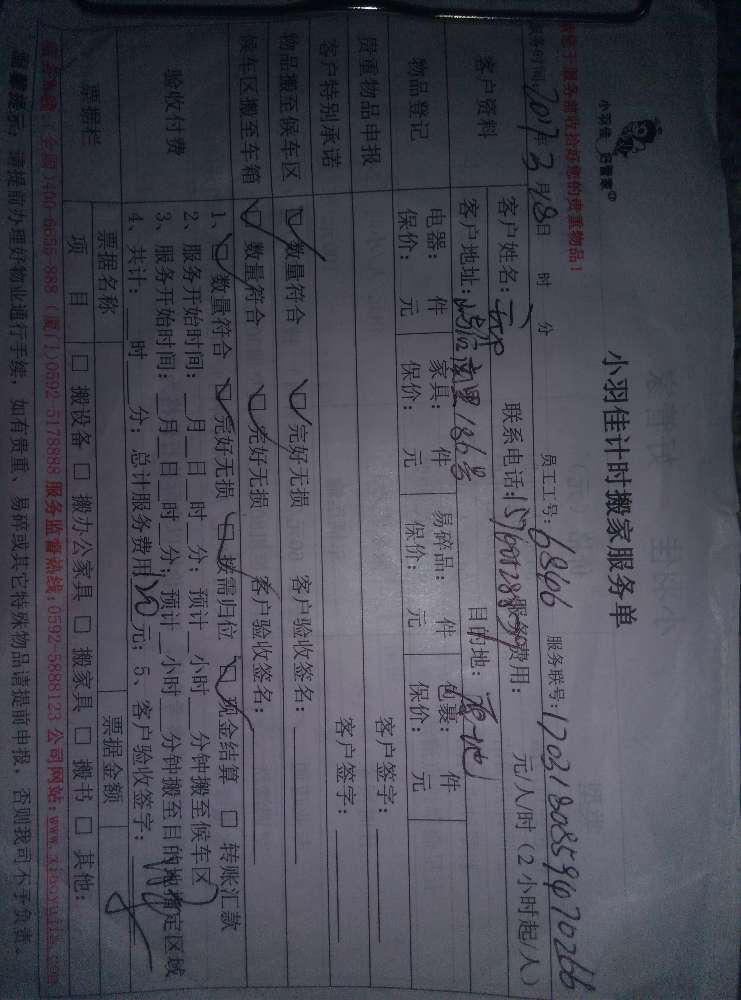 小羽佳 好管家
小羽佳计时搬家服务单
请您于服务前收拾好您的贵重物品！
服务时间：2017年3月18日 时 分 员工工号：6846 服务联号：
客户资料
客户姓名： 联系电话： 服务费用： 元/人/时（2小时起/人）
客户地址： 186号 目的地：
物品登记
电器： 件 家具： 件 易碎品： 件 包裹： 件
保价： 元 保价： 元 保价： 元 保价： 元
贵重物品申报 客户签字：
客户特别承诺 客户签字：
物品搬至候车区 □数量符合 □完好无损 客户验收签名：
候车区搬至车箱 □数量符合 □完好无损 客户验收签名：
验收付费
1、□数量符合 □完好无损 □按需归位 □现金结算 □转账汇款
2、服务开始时间：__月__日__时__分；预计__小时__分钟搬至候车区
3、服务开始时间：__月__日__时__分；预计__小时__分钟搬至目的地指定区域
4、共计：__时__分；总计服务费用 元；5、客户验收签字：
票据栏
票据名称 票据金额
项目 □搬设备 □搬办公家具 □搬家具 □搬书 □其他：
服务热线：全国）400-6656-888（厦门）0592-5178888 服务监督热线：0592-5888123 公司网站：www.xiaoyujia.com
温馨提示：请提前办理好物业通行手续，如有贵重、易碎或其它特殊物品请提前申报，否则我司不予负责。